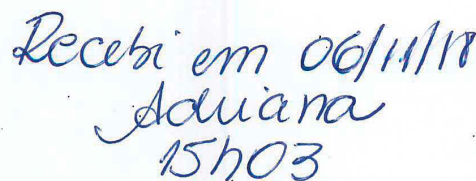 Recebi em 06/11/18
Adriana
15h03